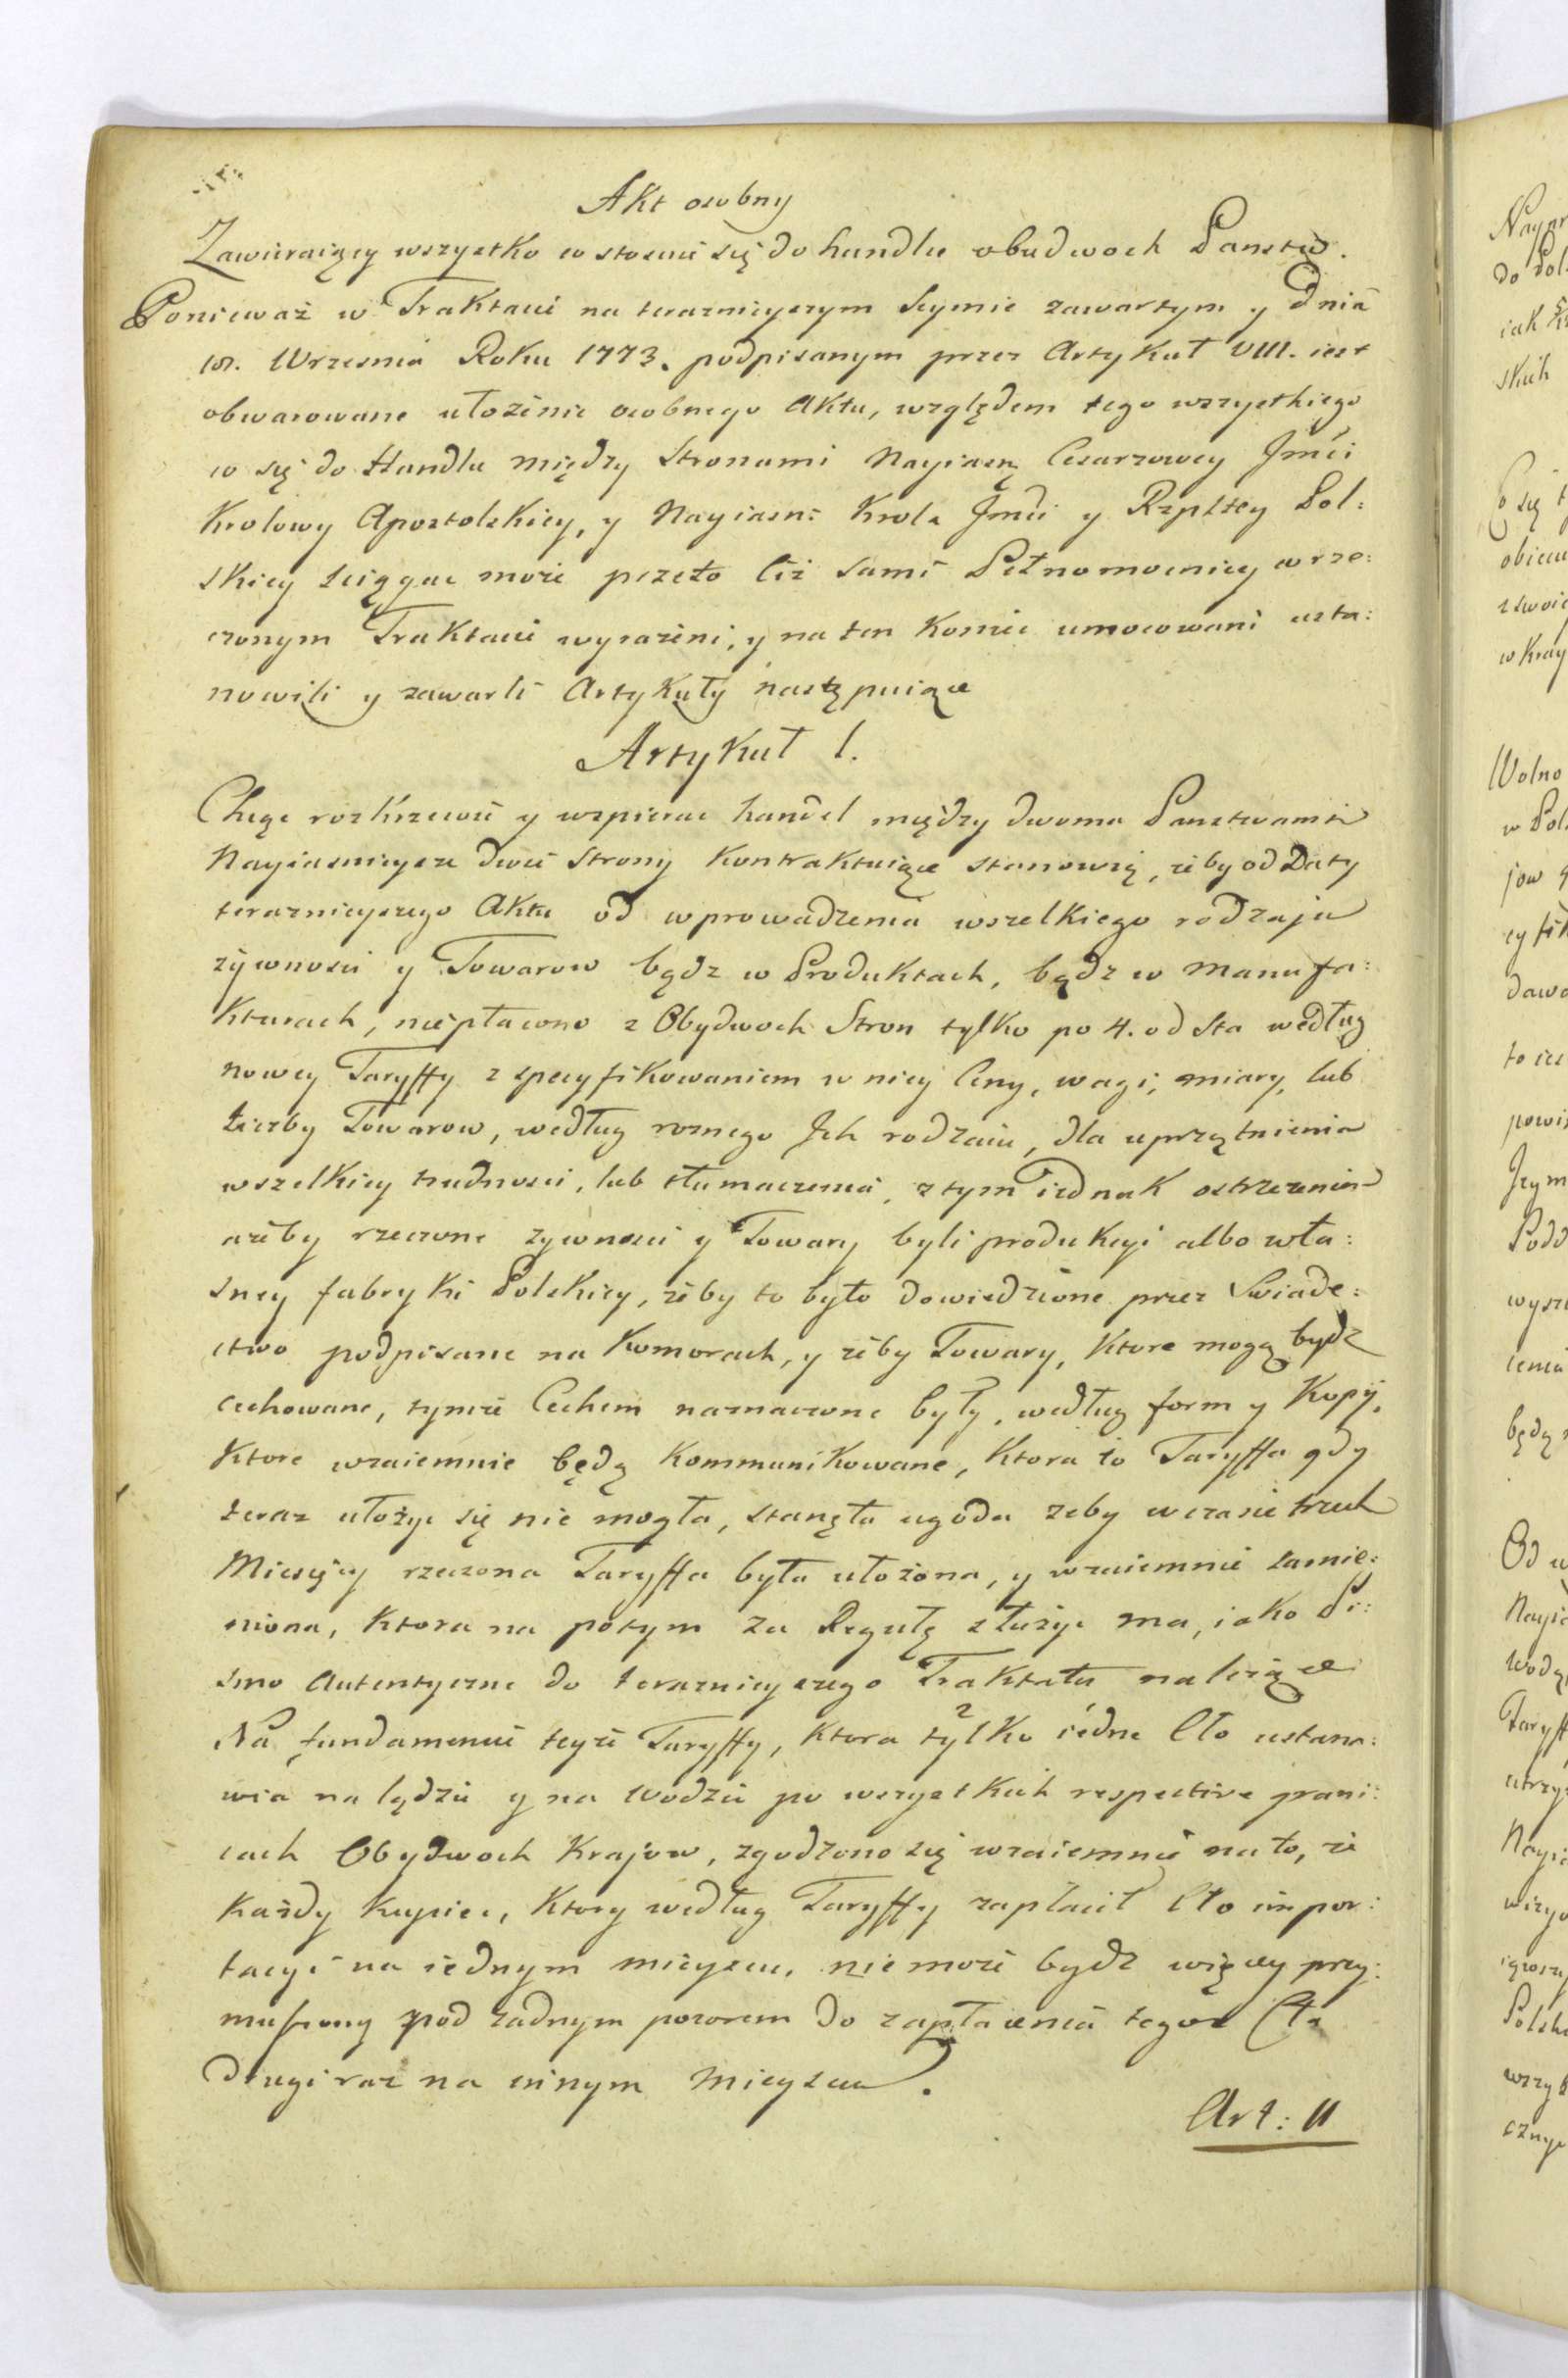 Akt osobny
Zawieraiący wszystko co stosuie się do handlu obudwoch Panstw.
Ponieważ w Traktacie na teraznieyszym Seymie zawartym y Dnia
18. Wrzesnia Roku 1773. podpisanym przez Artykuł VIII. iest
obwarowane ułożenie osobnego Aktu, względem tego wszystkiego
co się do Handlu między Stronami Nayiasnę Cesarzowey Jmći
Krolowy Apostolskiey, y Nayiasn: Krola Jmći y Rzpltey Pol:
skiey sciągac może przeto Ciż sami Pełnomocnicy w rze:
czonym Traktacie wyrażeni, y na ten Koniec umocowani usta:
nowili y zawarli Artykuły następuiące
Artykuł I.
Chcąc rozkrzewic y wspierac handel między dwoma Panstwami
Nayiasnieysze dwie Strony Kontraktuiące stanowią, żeby od Daty
teraznieyszego Aktu od wprowadzenia wszelkiego rodzaju
żywnosci y Towarow bądz w Produktach, bądz w Manufa:
kturach, niepłacono z Obydwoch Stron tylko po 4. od Sta według
nowey Taryffy z specyfikowaniem w niey Ceny, wagi, miary, lub
Liczby Towarow, według roznego Jch rodzaiu, dla uprzątnienia
wszelkiey trudnosci, lub tłumaczenia, z tym iednak ostrzezeniem
ażeby rzeczone zywnosci y Towary byli produkcyi albo wła:
sney fabryki Polskiey, żeby to było dowiedzione przez Swiade:
ctwo podpisane na Komorach, y żeby Towary, Ktore mogą bydz
cechowane, tymże Cechem naznaczone były, według form y Kopij,
Ktore wzaiemnie będą Kommunikowane, Ktora to Taryffa gdy
teraz ułożyc się nie mogła, stanęła ugoda zeby w czasie trzech
Miesięcy rzeczona Taryffa była ułożona, y wzaiemnie zamie:
niona, Ktora na potym za Regułę służyc ma, iako Pi:
smo Autentyczne do teraznieyszego Traktatu należące
Na fundamencie teyże Taryffy, Ktora tylko iedne Cło ustana:
wia na lądzie y na wodzie po wszystkich respective grani:
cach Obydwoch Krajow, zgodzono się wzaiemnie na to, że
Każdy Kupiec, Ktory według Taryffy zapłacił Cło impor:
tacyi na iednym mieyscu, niemoże bydz więcey przy:
muszony pod zadnym pozorem do zapłacenia tegoż Cła
drugi raz na innym Mieyscu.
Art: II